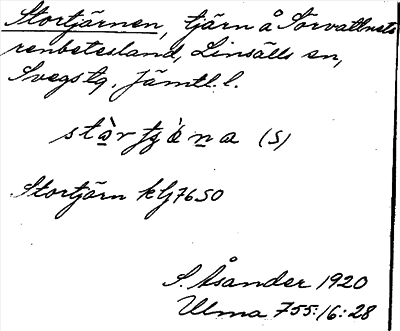 Stortjärnen, tjärn å Sörvattnets
renbetesland, Linsälls sn,
Svegs tg. Jämtl. l.
stòrtjàna (S)
Stortjärn klj 7650
S. Åsander 1920
Ulma 755:16:28